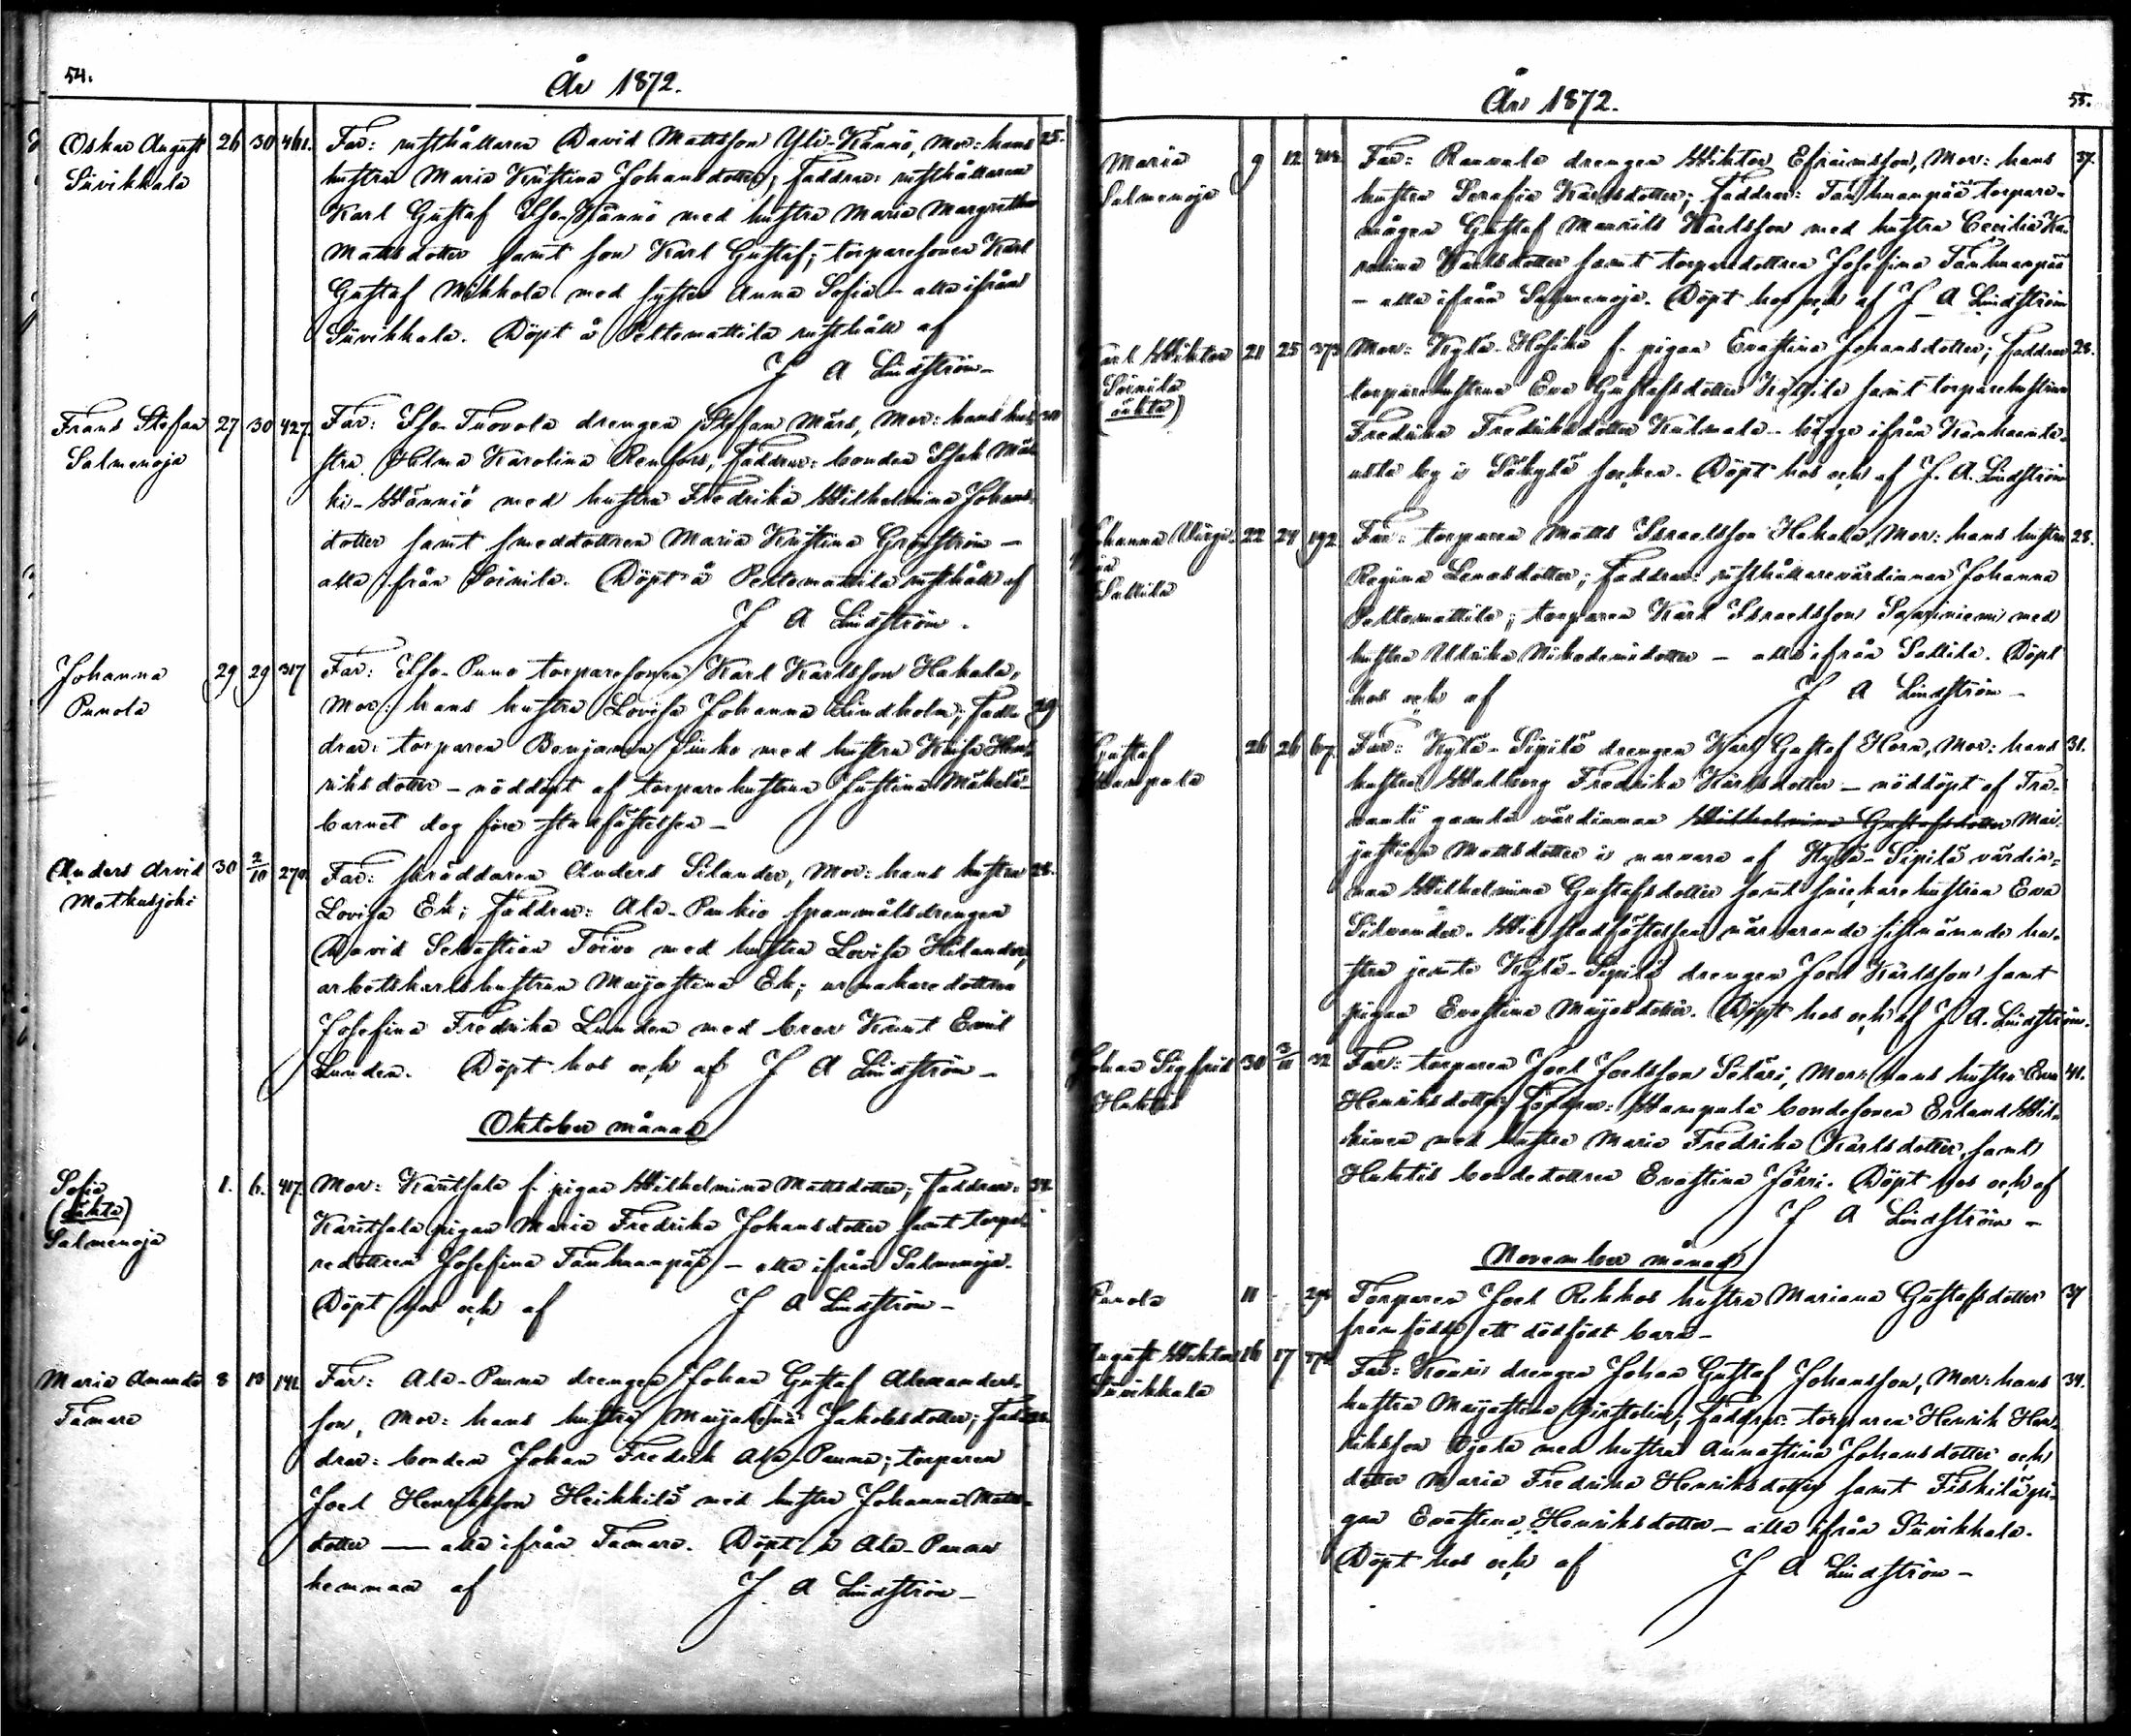 54.
År 1872.
Oskar August 26 30 461. Far: rusthållaren David Mattsson Yli-Kännö, Mor: hans 25.
Siivikkala hustru Maria Kristina Johansdotter; Faddrar: rusthållaren
Karl Gustaf Iso-Kännö med hustru Maria Margretha
Mattsdotter samt son Karl Gustaf; torparesonen Karl
Gustaf Mikkola med syster Anna Sofia - alla ifrån
Siivikkala. Döpt å Peltomattila rusthåll af
J A Lindström-
Frans Stefan 27 30 427. Far: Iso-Tuovola drengen Stefan Mårs, Mor: hans hu-
Salmenoja stru Helma Karolina Renfors; Faddrar: bonden Isak Mäk-
ki-Männiö med hustru Fredrika Wilhelmina Johans-
dotter samt smeddottren Maria Kristina Grönström -
alla ifrån Soinila. Döpt å Peltomattila rusthåll af
J A Lindström.
Johanna 29 29 317 Far: Iso-Puno torparesonen Karl Karlsson Hakala,
Punola Mor: hans hustru Lovisa Johanna Lindholm; Fad- 29
drar: torparen Benjamin Sinko med hustru Kaisa Hen-
riksdotter - nöddöpt af torparehustrun Justina Mäkelä-
barnet dog före stadfästelsen-
Anders Arvid 30 2/10 270. Far: skräddaren Anders Silander, Mor: hans hustru 28.
Matkusjoki Lovisa Ek; Faddrar: Ala-Penkio spannmålsdrengen
David Sebastian Toivo med hustru Lovisa Hilander;
arbetskarlshustrun Majastina Ek; urmakaredottren
Josefina Fredrika Lunden med bror Knut Emil
Lunden. Döpt hos och af J A Lindström-
Oktober månad
Sofia 1. 6. 417. Mor: Karitsala f. pigan Wilhelmina Mattsdotter; Faddrar: 34.
(oäkta) Karitsala pigan Maria Fredrika Johansdotter samt torpa-
Salmenoja redottren Josefina Tanhuanpää - alla ifrån Salmenoja.
Döpt hos och af J A Lindström-
Maria Amanda 8 13 141 Far: Ala-Panna drengen Johan Gustaf Alexanders-
Tamare son, Mor: hans hustru Majalena Jakobsdotter; Fad-
drar: bonden Johan Fredrik Ala-Panna; torparen
Joel Henriksson Heikkilä med hustru Johanna Matts-
dotter - alla ifrån Tamare. Döpt å Ala-Panna
hemman af J. A Lindström-
År 1872. 55.
Maria 9 12 Far: Rauvala drengen Wiktor Efraimsson, Mor: hans 37.
Salmenoja hustru Serafia Karlsdotter; Faddrar: Tanhuanpää torpare-
mågen Gustaf Manuils Karlsson med hustru Cecilia Ka-
rolina Karlsdotter samt torparedottren Josefina Tanhuanpää
- alla ifrån Salmenoja. Döpt hos och af J A Lindström
Karl Wiktor 21 25 373 Mor: Kylä-Hosike f. pigan Evastina Johansdotter; Faddrar 28.
Soinila torparehustrun Eva Gustafsdotter Kattila samt torparehustrun
(oäkta) Fredrika Fredriksdotter Kulmala - bägge ifrån
by i Säkylä socken. Döpt hos och af J. A. Lindström
Johanna Virgi- 22 24 192 Far: torparen Matts Israelsson Hakala, Mor: hans hustru 28.
nia Regina Lenasdotter; Faddrar: rusthållarevärdinnan Johanna
Sallila Peltomattila; torparen Karl Israelsson Saariniemi med
hustru Ulrika Nikodemidotter - alla ifrån Sallila. Döpt
hos och af J A Lindström-
Gustaf 26 26 67. Far: Kylä-Sipilä drengen Karl Gustaf Horn, Mor: hans 31.
Wampula hustru Walborg Fredrika Karlsdotter - nöddöpt af
gamla värdinnan Wilhelmina Gustafsdotter Mai-
jastina Mattsdotter i närvaro af Kylä-Sipilä värdin-
nan Wilhelmina Gustafsdotter samt snickarehustrun Eva
Silvander. Wid stadfästelsen närvarande sistnämnde hu-
stru jemte Kylä-Sipilä drengen Joel Karlsson samt
pigan Evastina Majasdotter. Döpt hos och af J. A. Lindström.
Johan Sigfrid 30 3/11 32 Far: torparen Joel Joelsson Sätäri, Mor: hans hustru Eva 41.
Huhtis Henriksdotter; Faddrar: Wampula bondesonen Erland
med hustru Maria Fredrika Karlsdotter, samt
Huhtis bondedottren Evastina Jässi. Döpt hos och af
J A Lindström-
November månad
Punola 11 - Torparen Joel Rekkos hustru Mariana Gustafsdotter 37
framfödde ett dödfödt barn-
August Wiktor 16 17 Far: Konni drengen Johan Gustaf Johansson, Mor: hans 34.
Siivikkala hustru Majastina; Faddrar: torparen Henrik Hen-
riksson Ojala med hustru Annastina Johansdotter och
dotter Maria Fredrika Henriksdotter samt Fiskilä pi-
gan Evastina Henriksdotter - alla ifrån Siivikkala.
Döpt hos och af J A Lindström-